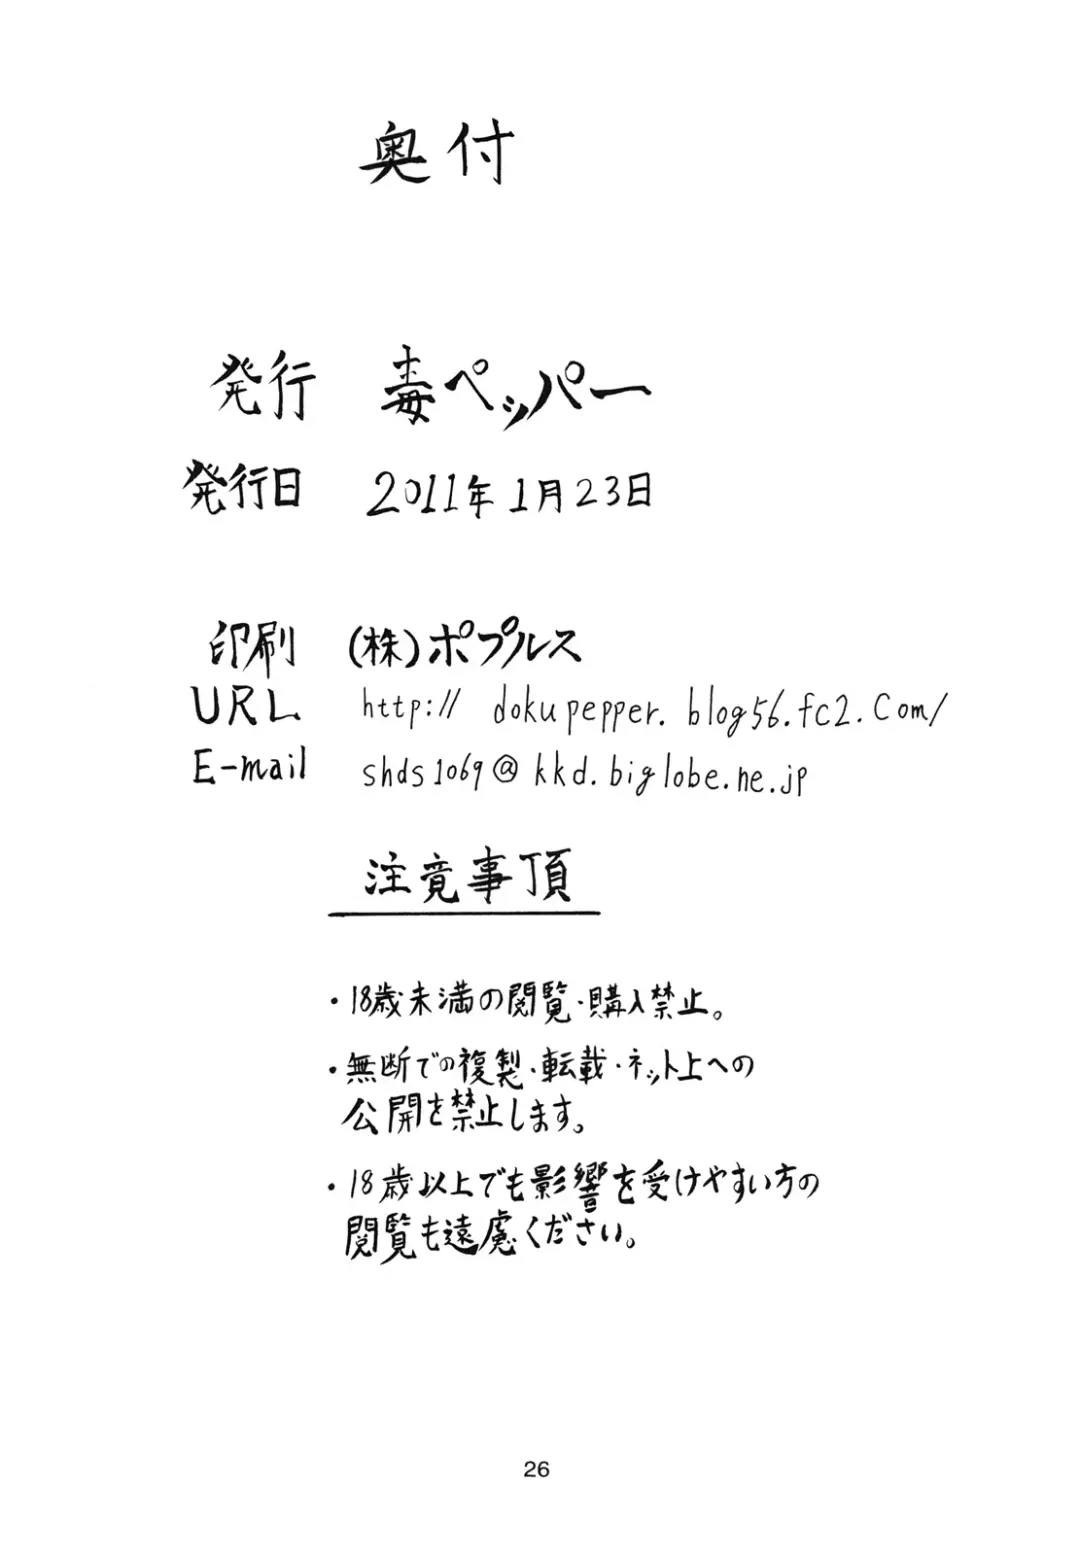 奥付
発行 毒ペッパー
発行日 2011年1月23日
印刷 (株)ポプルス
URL http://dokupepper.blog56.fc2.com/
E-mail shds1069@kkd.biglobe.ne.jp
注意事項
・18歳未満の閲覧・購入禁止。
・無断での複製・転載・ネット上への
公開を禁止します。
・18歳以上でも影響を受けやすい方の
閲覧も遠慮ください。
26